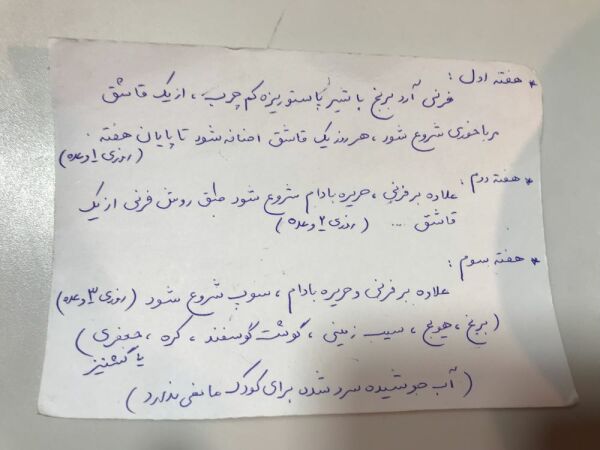 * هفته اول :
فرنی آرد برنج با شیر پاستوریزه کم چرب ، از یک قاشق
مرباخوری شروع شود ، هر روز یک قاشق اضافه شود تا پایان هفته .
(روزی ۱ وعده)
* هفته دوم :
علاوه بر فرنی ، حریره بادام شروع شود طبق روش فرنی از یک
قاشق ... (روزی ۲ وعده)
* هفته سوم :
علاوه بر فرنی و حریره بادام ، سوپ شروع شود (روزی ۳ وعده)
(برنج ، هویج ، سیب زمینی ، گوشت گوسفند ، کره ، جعفری
یا گشنیز)
(آب جوشیده سرد شده برای کودک مانعی ندارد)